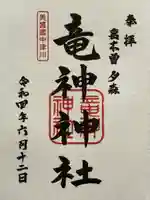 奉拝
裏木曽夕森
竜神神社
美濃國中津川
令和四年六月十二日